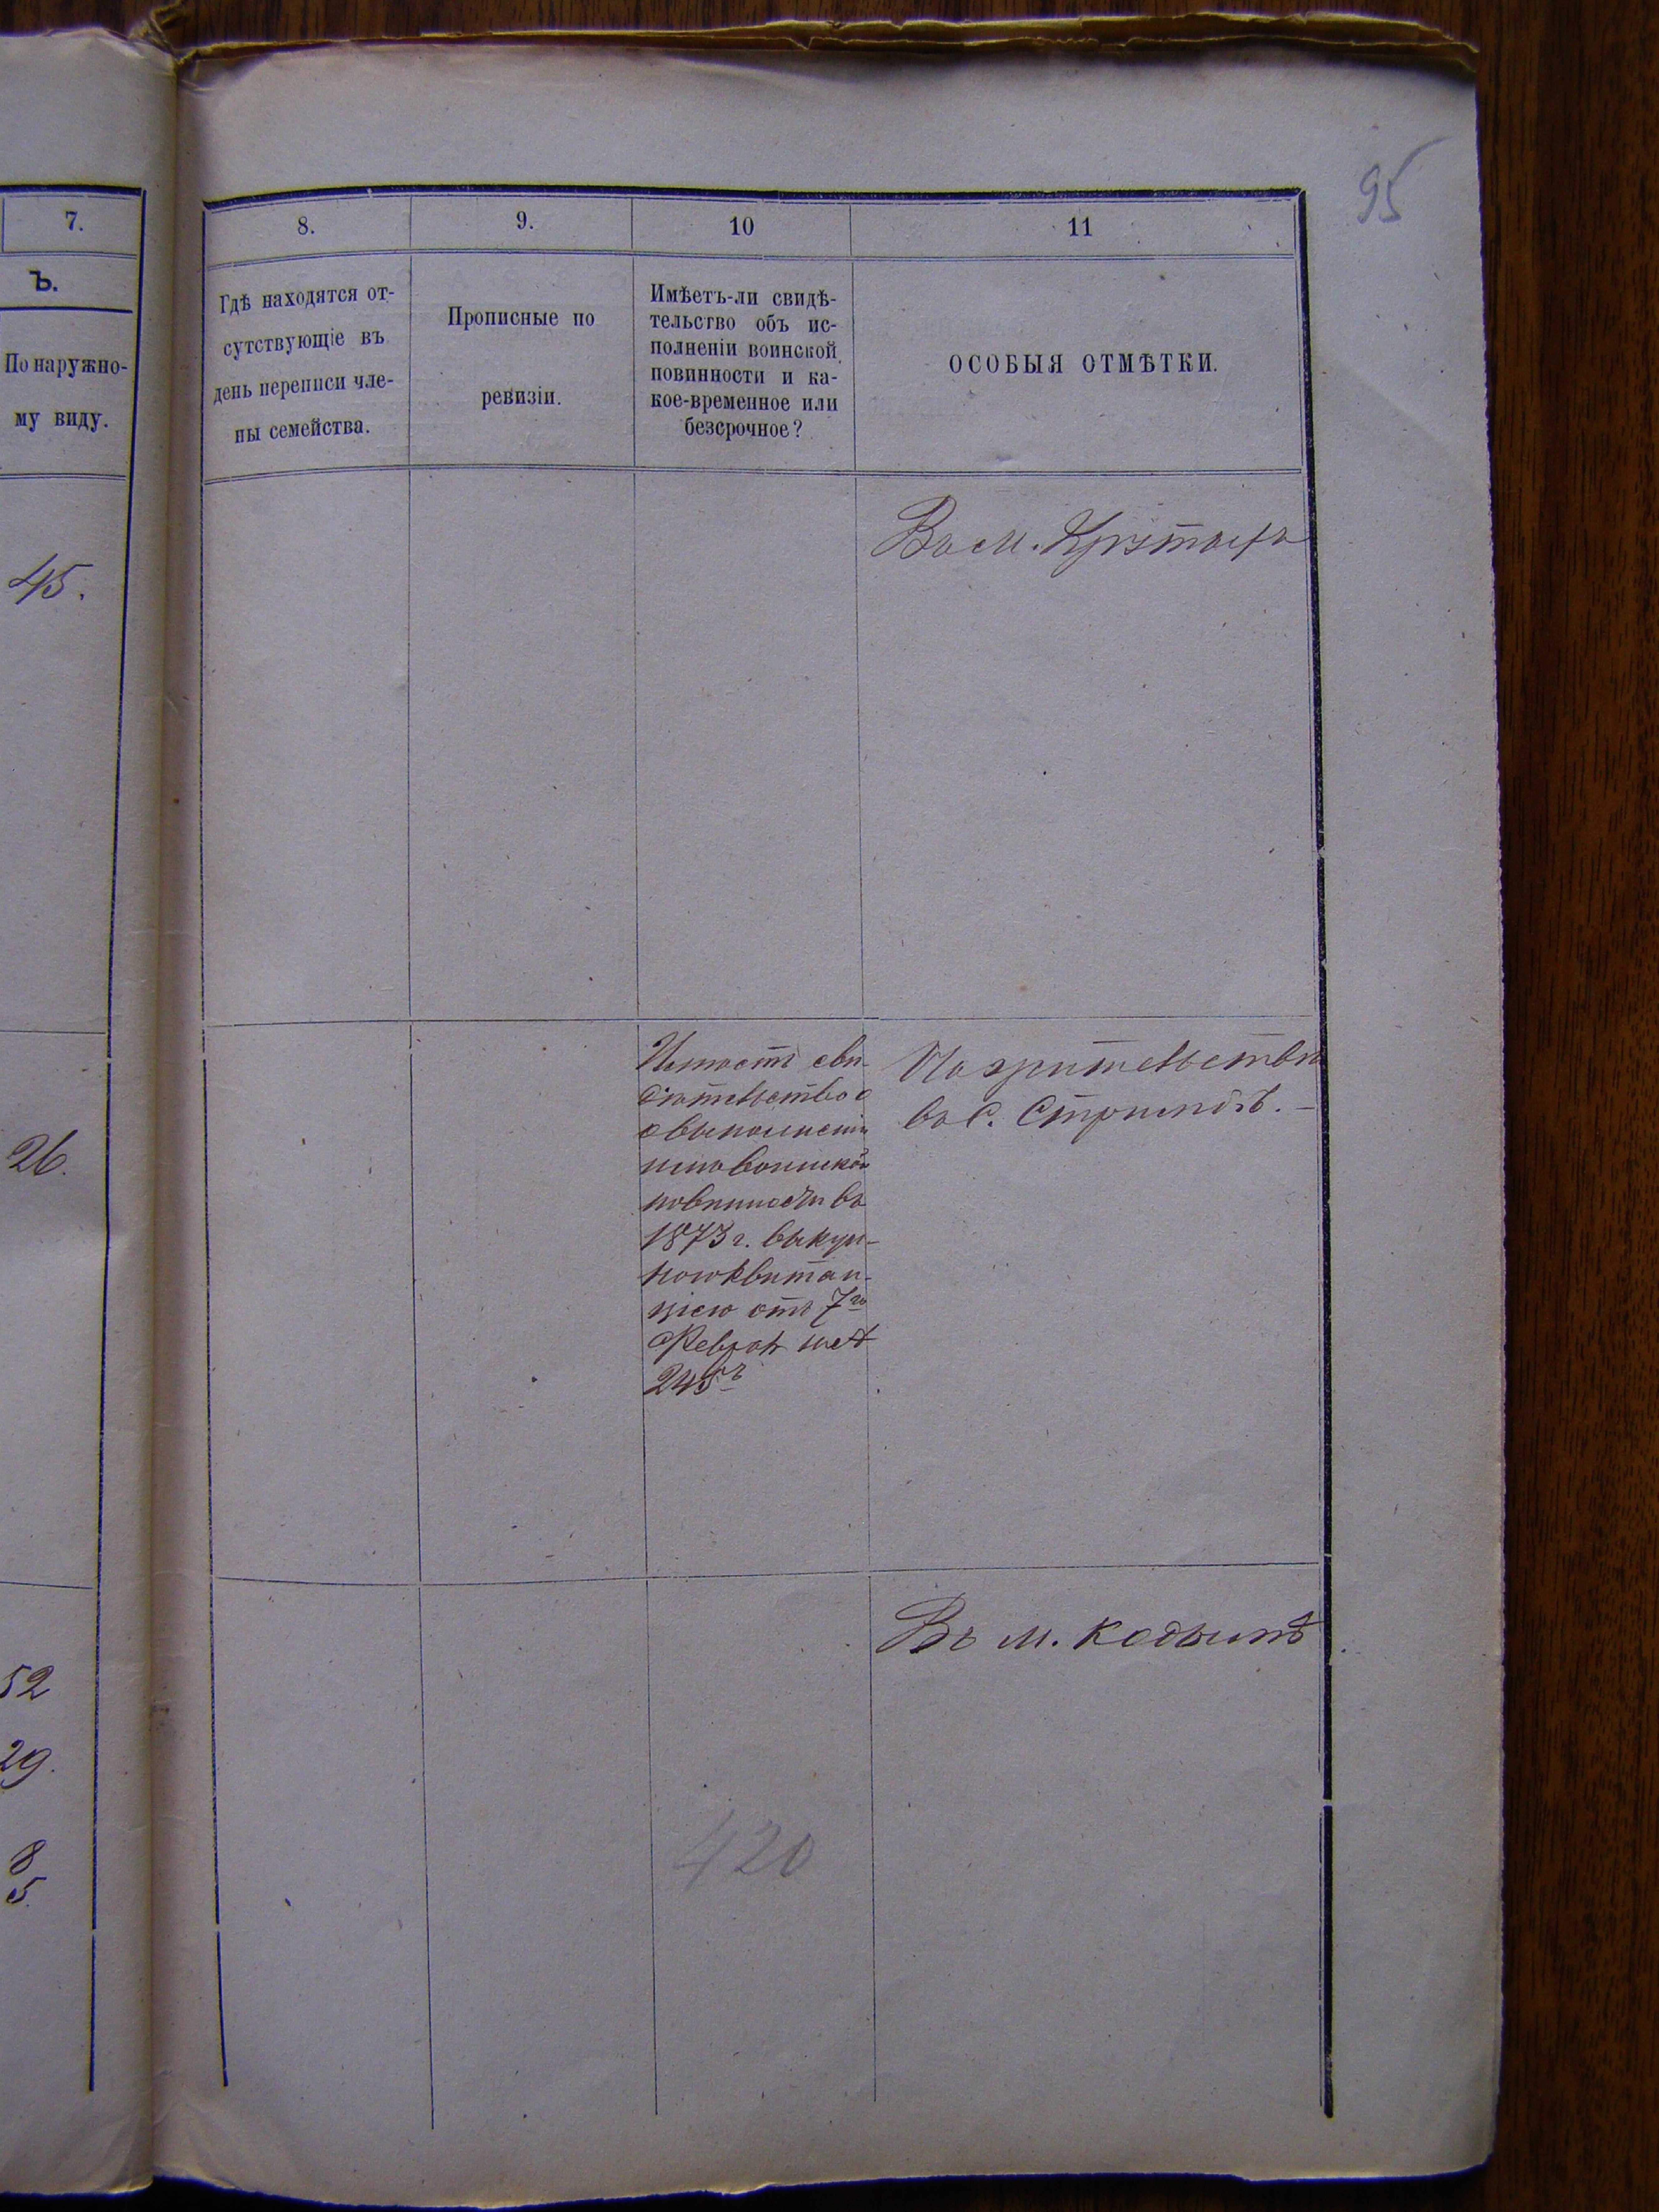 95
7.
8.
9.
10
11
Ъ.
По наружно-
му виду.
Гдѣ находятся от-
сутствующіе въ
день переписи чле-
ны семейства.
Прописные по
ревизіи.
Имѣетъ-ли свидѣ-
тельство объ ис-
полненіи воинской
повинности и ка-
кое-временное или
безсрочное?
ОСОБЫЯ ОТМѢТКИ.
45.
Въ м.
26.
Имѣетъ сви-
дѣтельство о
выполненіи
имъ воинской
повинности въ
1873 г. выкуп-
ною квитан-
ціею отъ 7го
Февраля
245
На жительствѣ
въ с.
Въ м. Кодымѣ
52
29.
8
5.
420